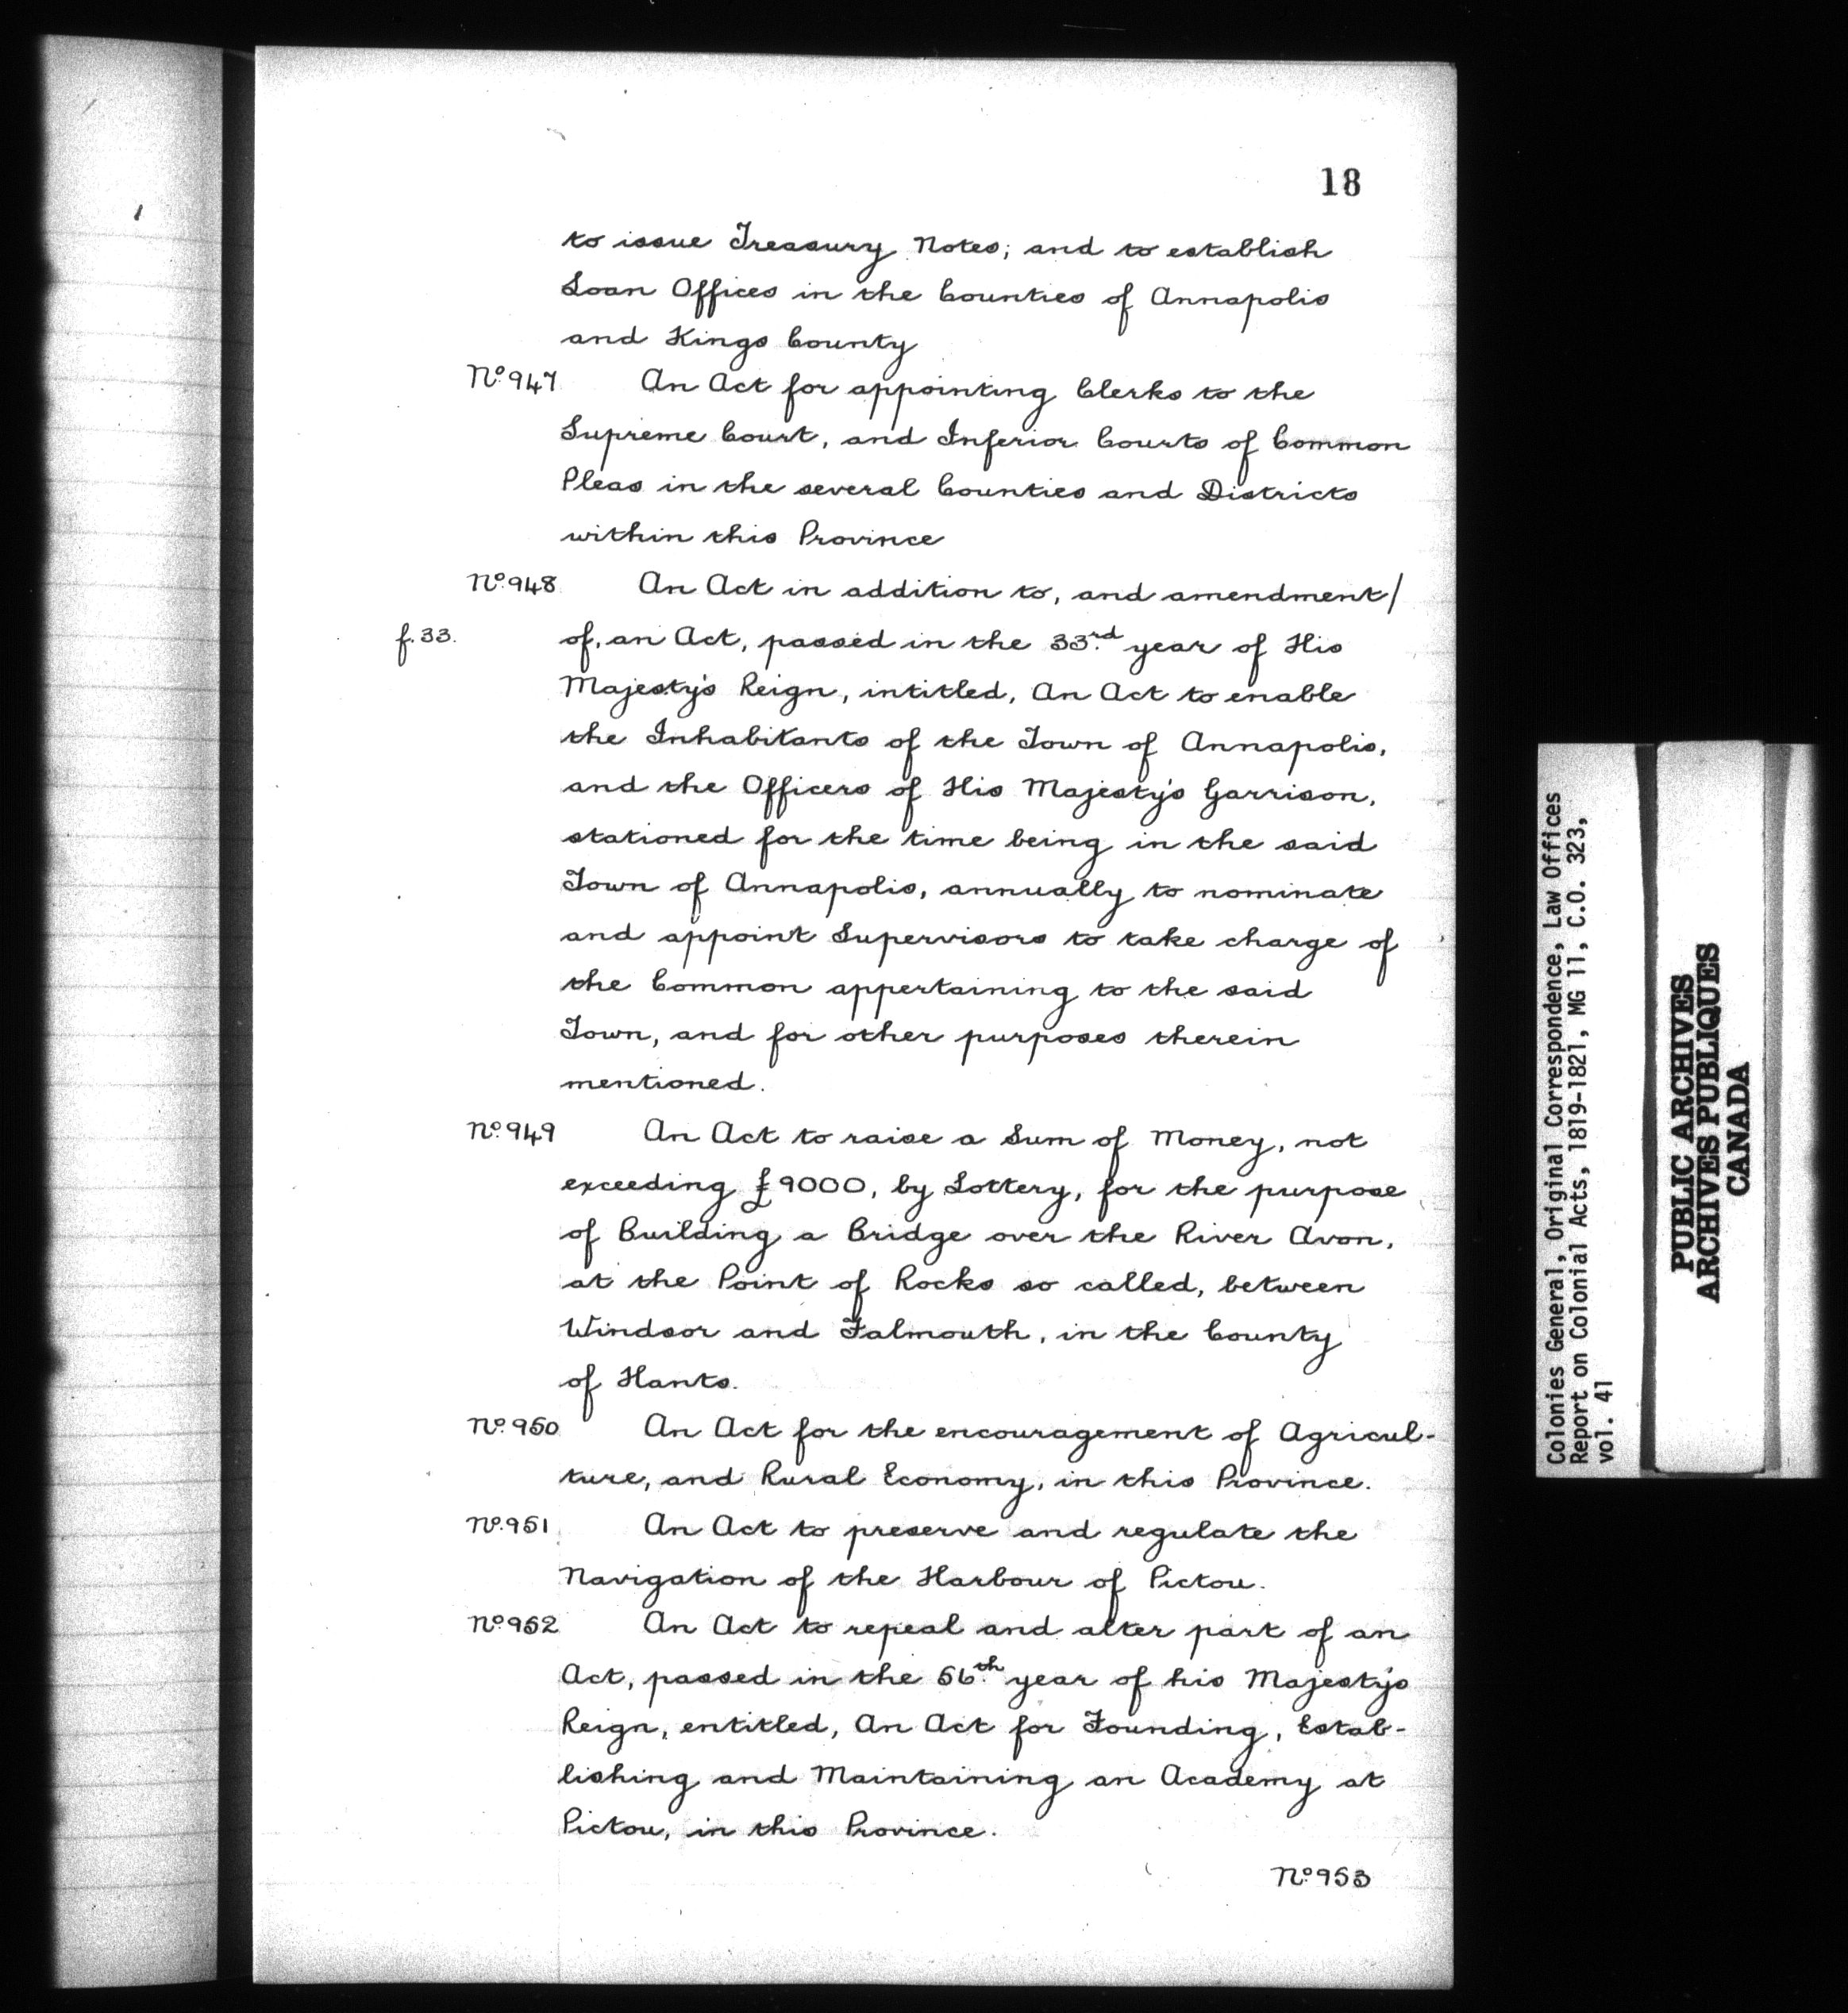 18
to issue Treasury Notes; and to establish
Loan Offices in the Counties of Annapolis
and Kings County
No. 947 An Act for appointing Clerks to the
Supreme Court, and Inferior Courts of Common
Pleas in the several Counties and Districts
within this Province
No. 948 An Act in addition to, and amendment/
f. 33. of, an Act, passed in the 33rd. year of His
Majesty's Reign, intitled, An Act to enable
the Inhabitants of the Town of Annapolis,
and the Officers of His Majesty's Garrison,
stationed for the time being in the said
Town of Annapolis, annually to nominate
and appoint Supervisors to take charge of
the Common appertaining to the said
Town, and for other purposes therein
mentioned.
No. 949 An Act to raise a Sum of Money, not
exceeding £9000, by Lottery, for the purpose
of Building a Bridge over the River Avon,
at the Point of Rocks so called, between
Windsor and Falmouth, in the County
of Hants.
No. 950 An Act for the encouragement of Agricul-
ture, and Rural Economy, in this Province.
No. 951 An Act to preserve and regulate the
Navigation of the Harbour of Pictou.
No. 952 An Act to repeal and alter part of an
Act, passed in the 56th. year of his Majesty's
Reign, entitled, An Act for Founding, Estab-
lishing and Maintaining an Academy at
Pictou, in this Province.
No. 953
Colonies General, Original Correspondence, Law Offices
Report on Colonial Acts, 1819-1821, MG 11, C.O. 323,
vol. 41
PUBLIC ARCHIVES
ARCHIVES PUBLIQUES
CANADA